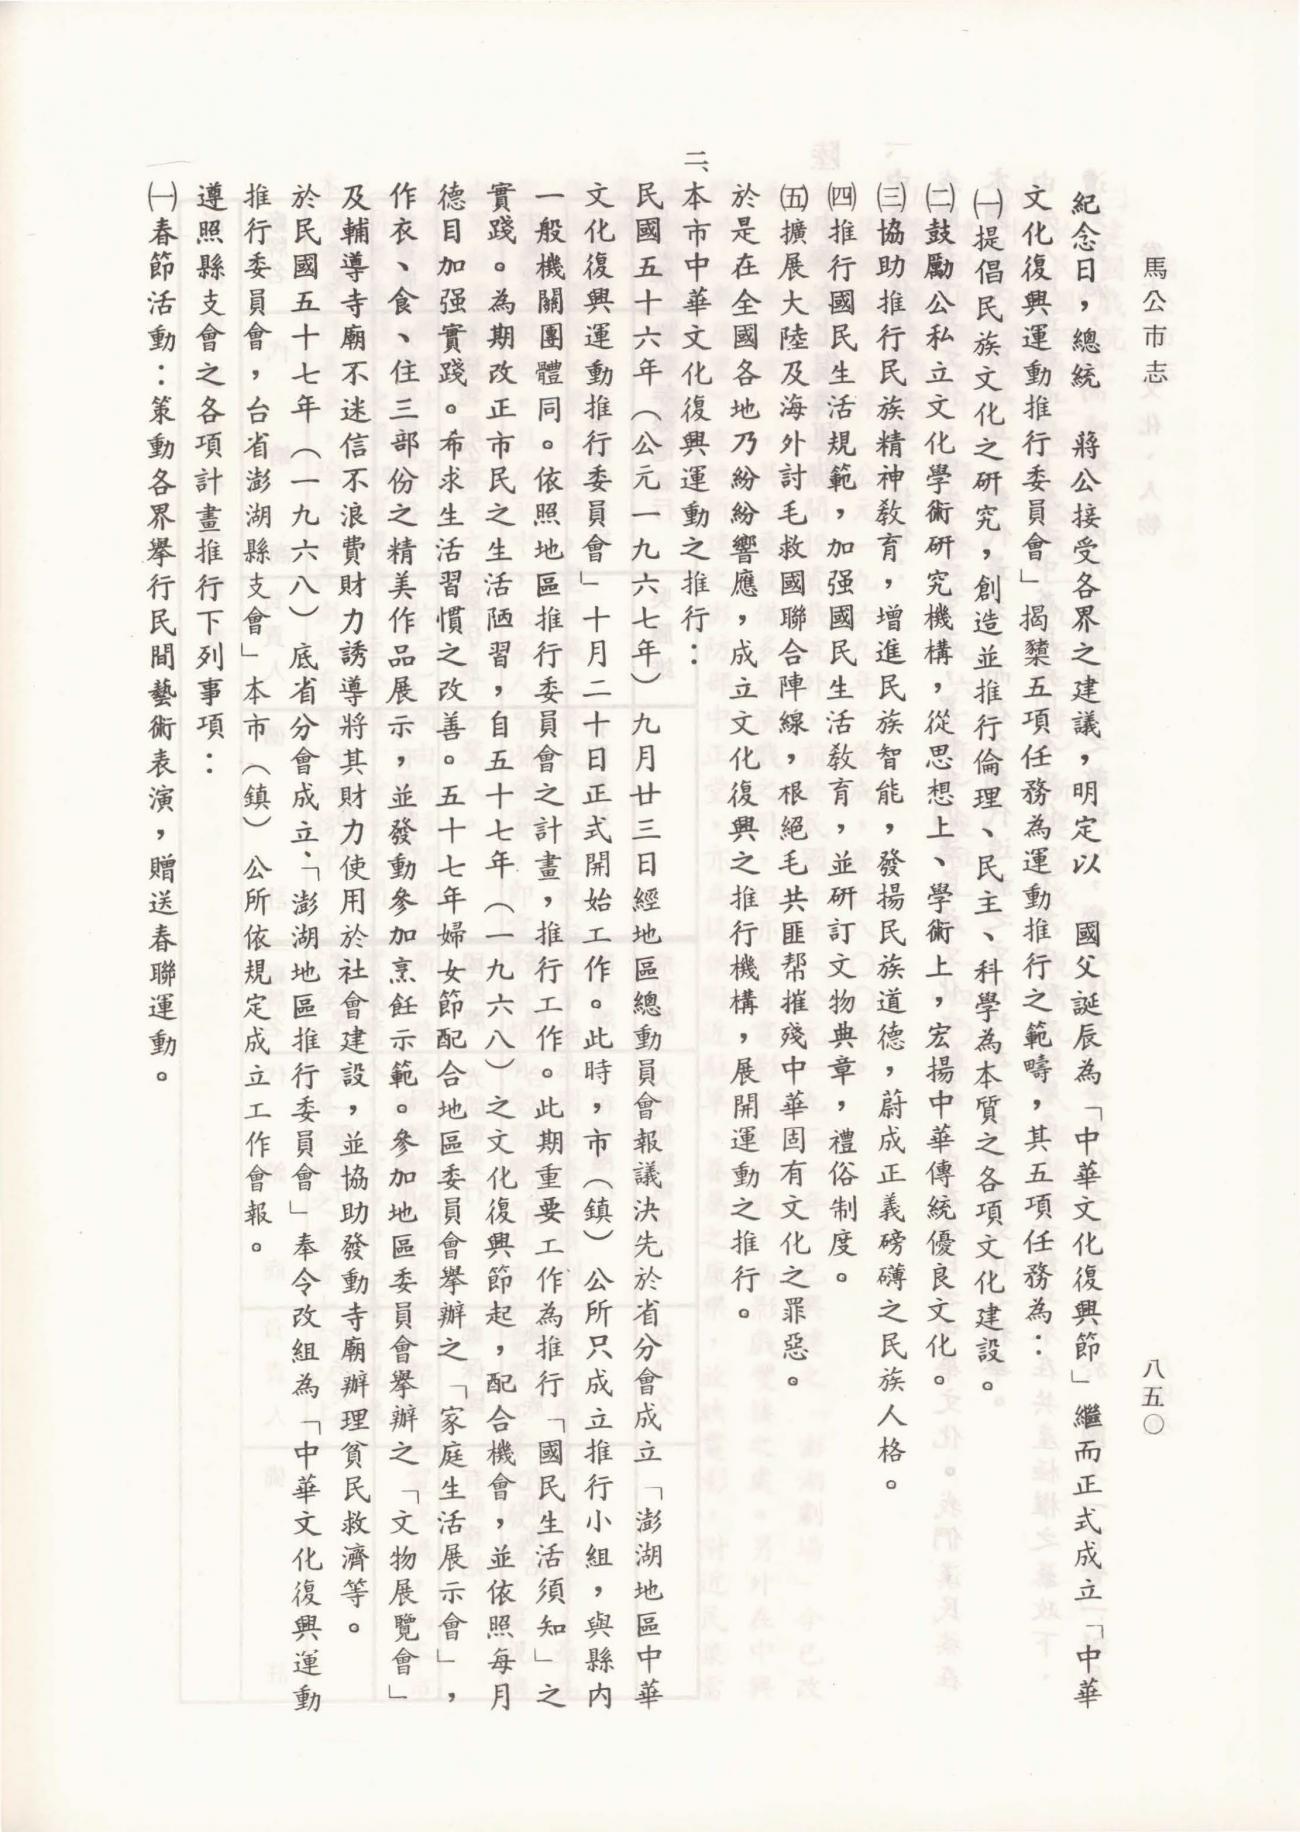 馬公市志
八五〇
紀念日，總統　蔣公接受各界之建議，明定以　國父誕辰為「中華文化復興節」繼而正式成立「中華
文化復興運動推行委員會」揭櫫五項任務為運動推行之範疇，其五項任務為：
㈠提倡民族文化之研究，創造並推行倫理、民主、科學為本質之各項文化建設。
㈡鼓勵公私立文化學術研究機構，從思想上、學術上，宏揚中華傳統優良文化。
㈢協助推行民族精神教育，增進民族智能，發揚民族道德，蔚成正義磅礴之民族人格。
㈣推行國民生活規範，加强國民生活教育，並研訂文物典章，禮俗制度。
㈤擴展大陸及海外討毛救國聯合陣線，根絕毛共匪幫摧殘中華固有文化之罪惡。
於是在全國各地乃紛紛響應，成立文化復興之推行機構，展開運動之推行。
二、本市中華文化復興運動之推行：
民國五十六年（公元一九六七年）九月廿三日經地區總動員會報議決先於省分會成立「澎湖地區中華
文化復興運動推行委員會」十月二十日正式開始工作。此時，市（鎮）公所只成立推行小組，與縣內
一般機關團體同。依照地區推行委員會之計畫，推行工作。此期重要工作為推行「國民生活須知」之
實踐。為期改正市民之生活陋習，自五十七年（一九六八）之文化復興節起，配合機會，並依照每月
德目加强實踐。希求生活習慣之改善。五十七年婦女節配合地區委員會舉辦之「家庭生活展示會」，
作衣、食、住三部份之精美作品展示，並發動參加烹飪示範。參加地區委員會舉辦之「文物展覽會」
及輔導寺廟不迷信不浪費財力誘導將其財力使用於社會建設，並協助發動寺廟辦理貧民救濟等。
於民國五十七年（一九六八）底省分會成立，「澎湖地區推行委員會」奉令改組為「中華文化復興運動
推行委員會，台省澎湖縣支會」本市（鎮）公所依規定成立工作會報。
遵照縣支會之各項計畫推行下列事項：
㈠春節活動：策動各界舉行民間藝術表演，贈送春聯運動。